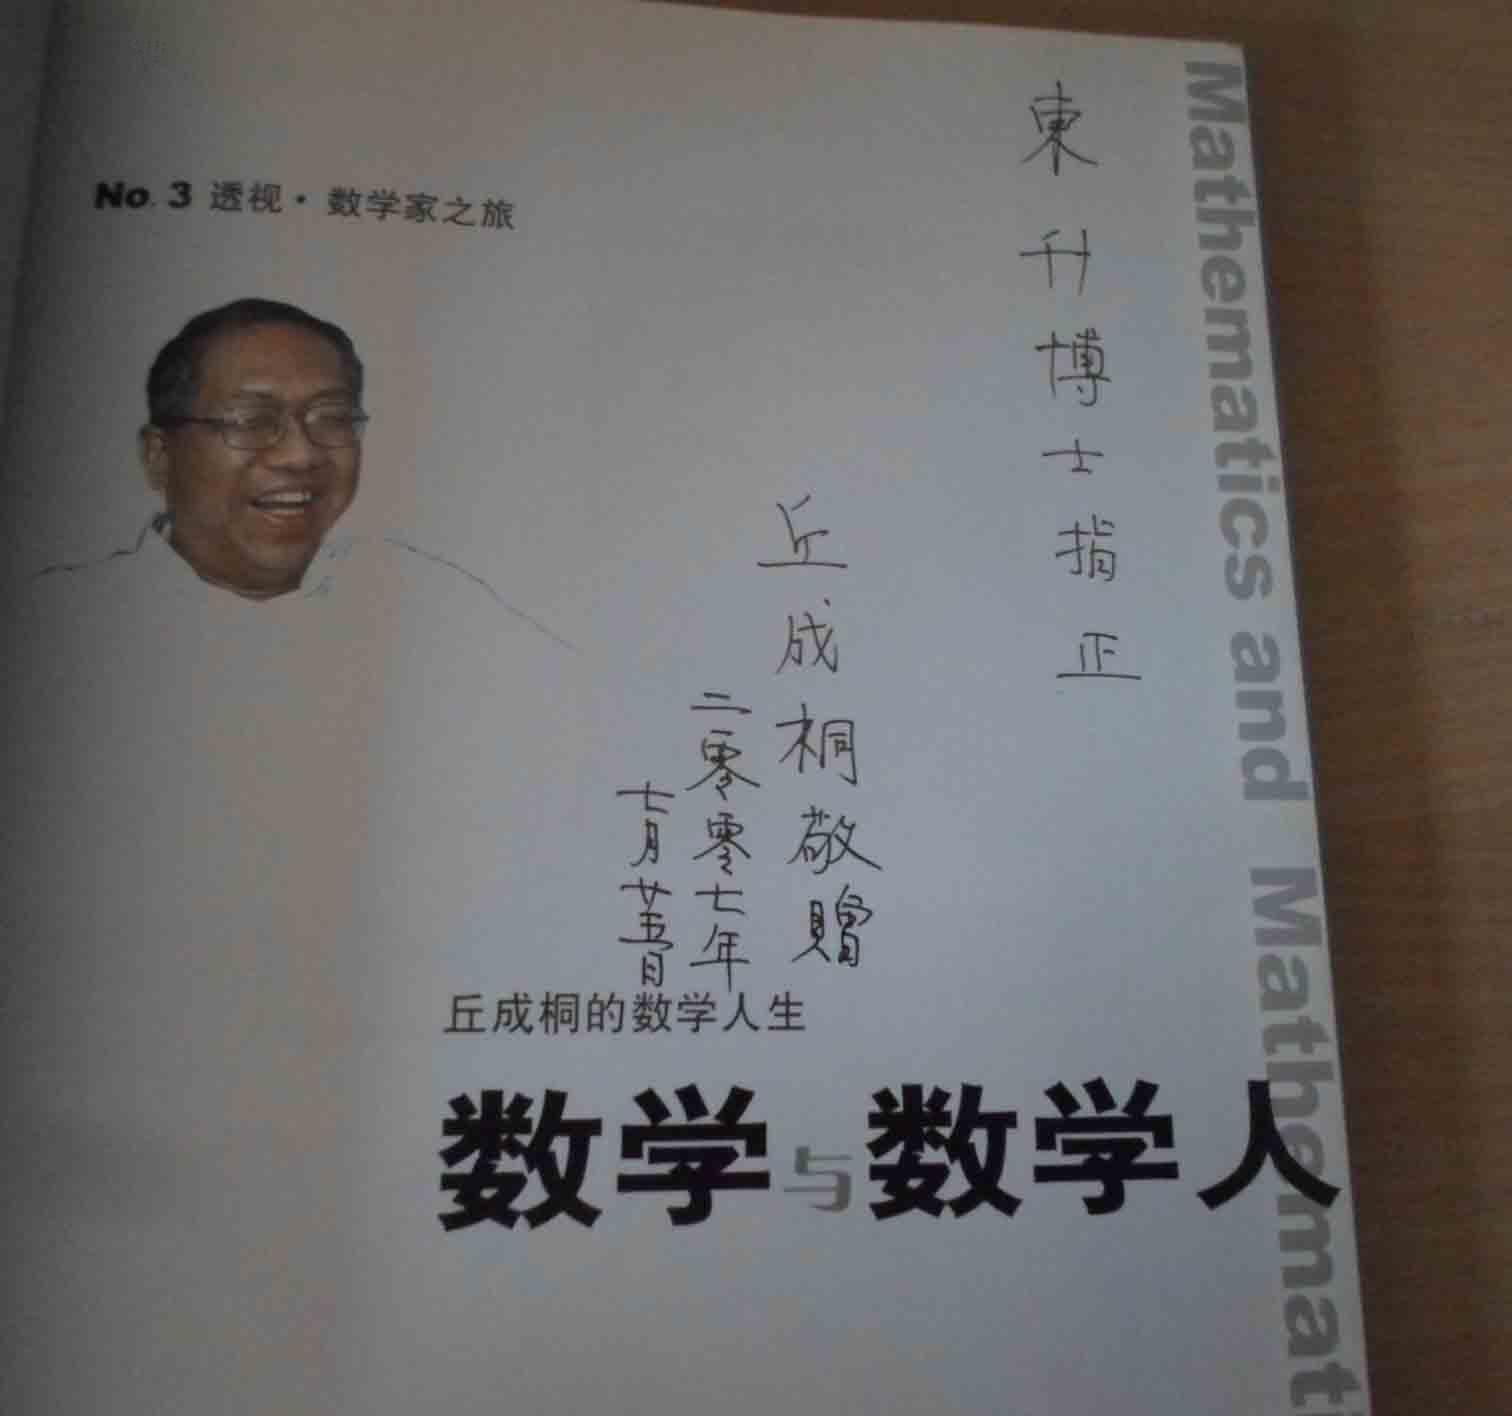 No. 3 透视·数学家之旅
東升博士指正
丘成桐敬贈
二零零七年
七月廿五日
丘成桐的数学人生
数学与数学人
Mathematics and Mathemat